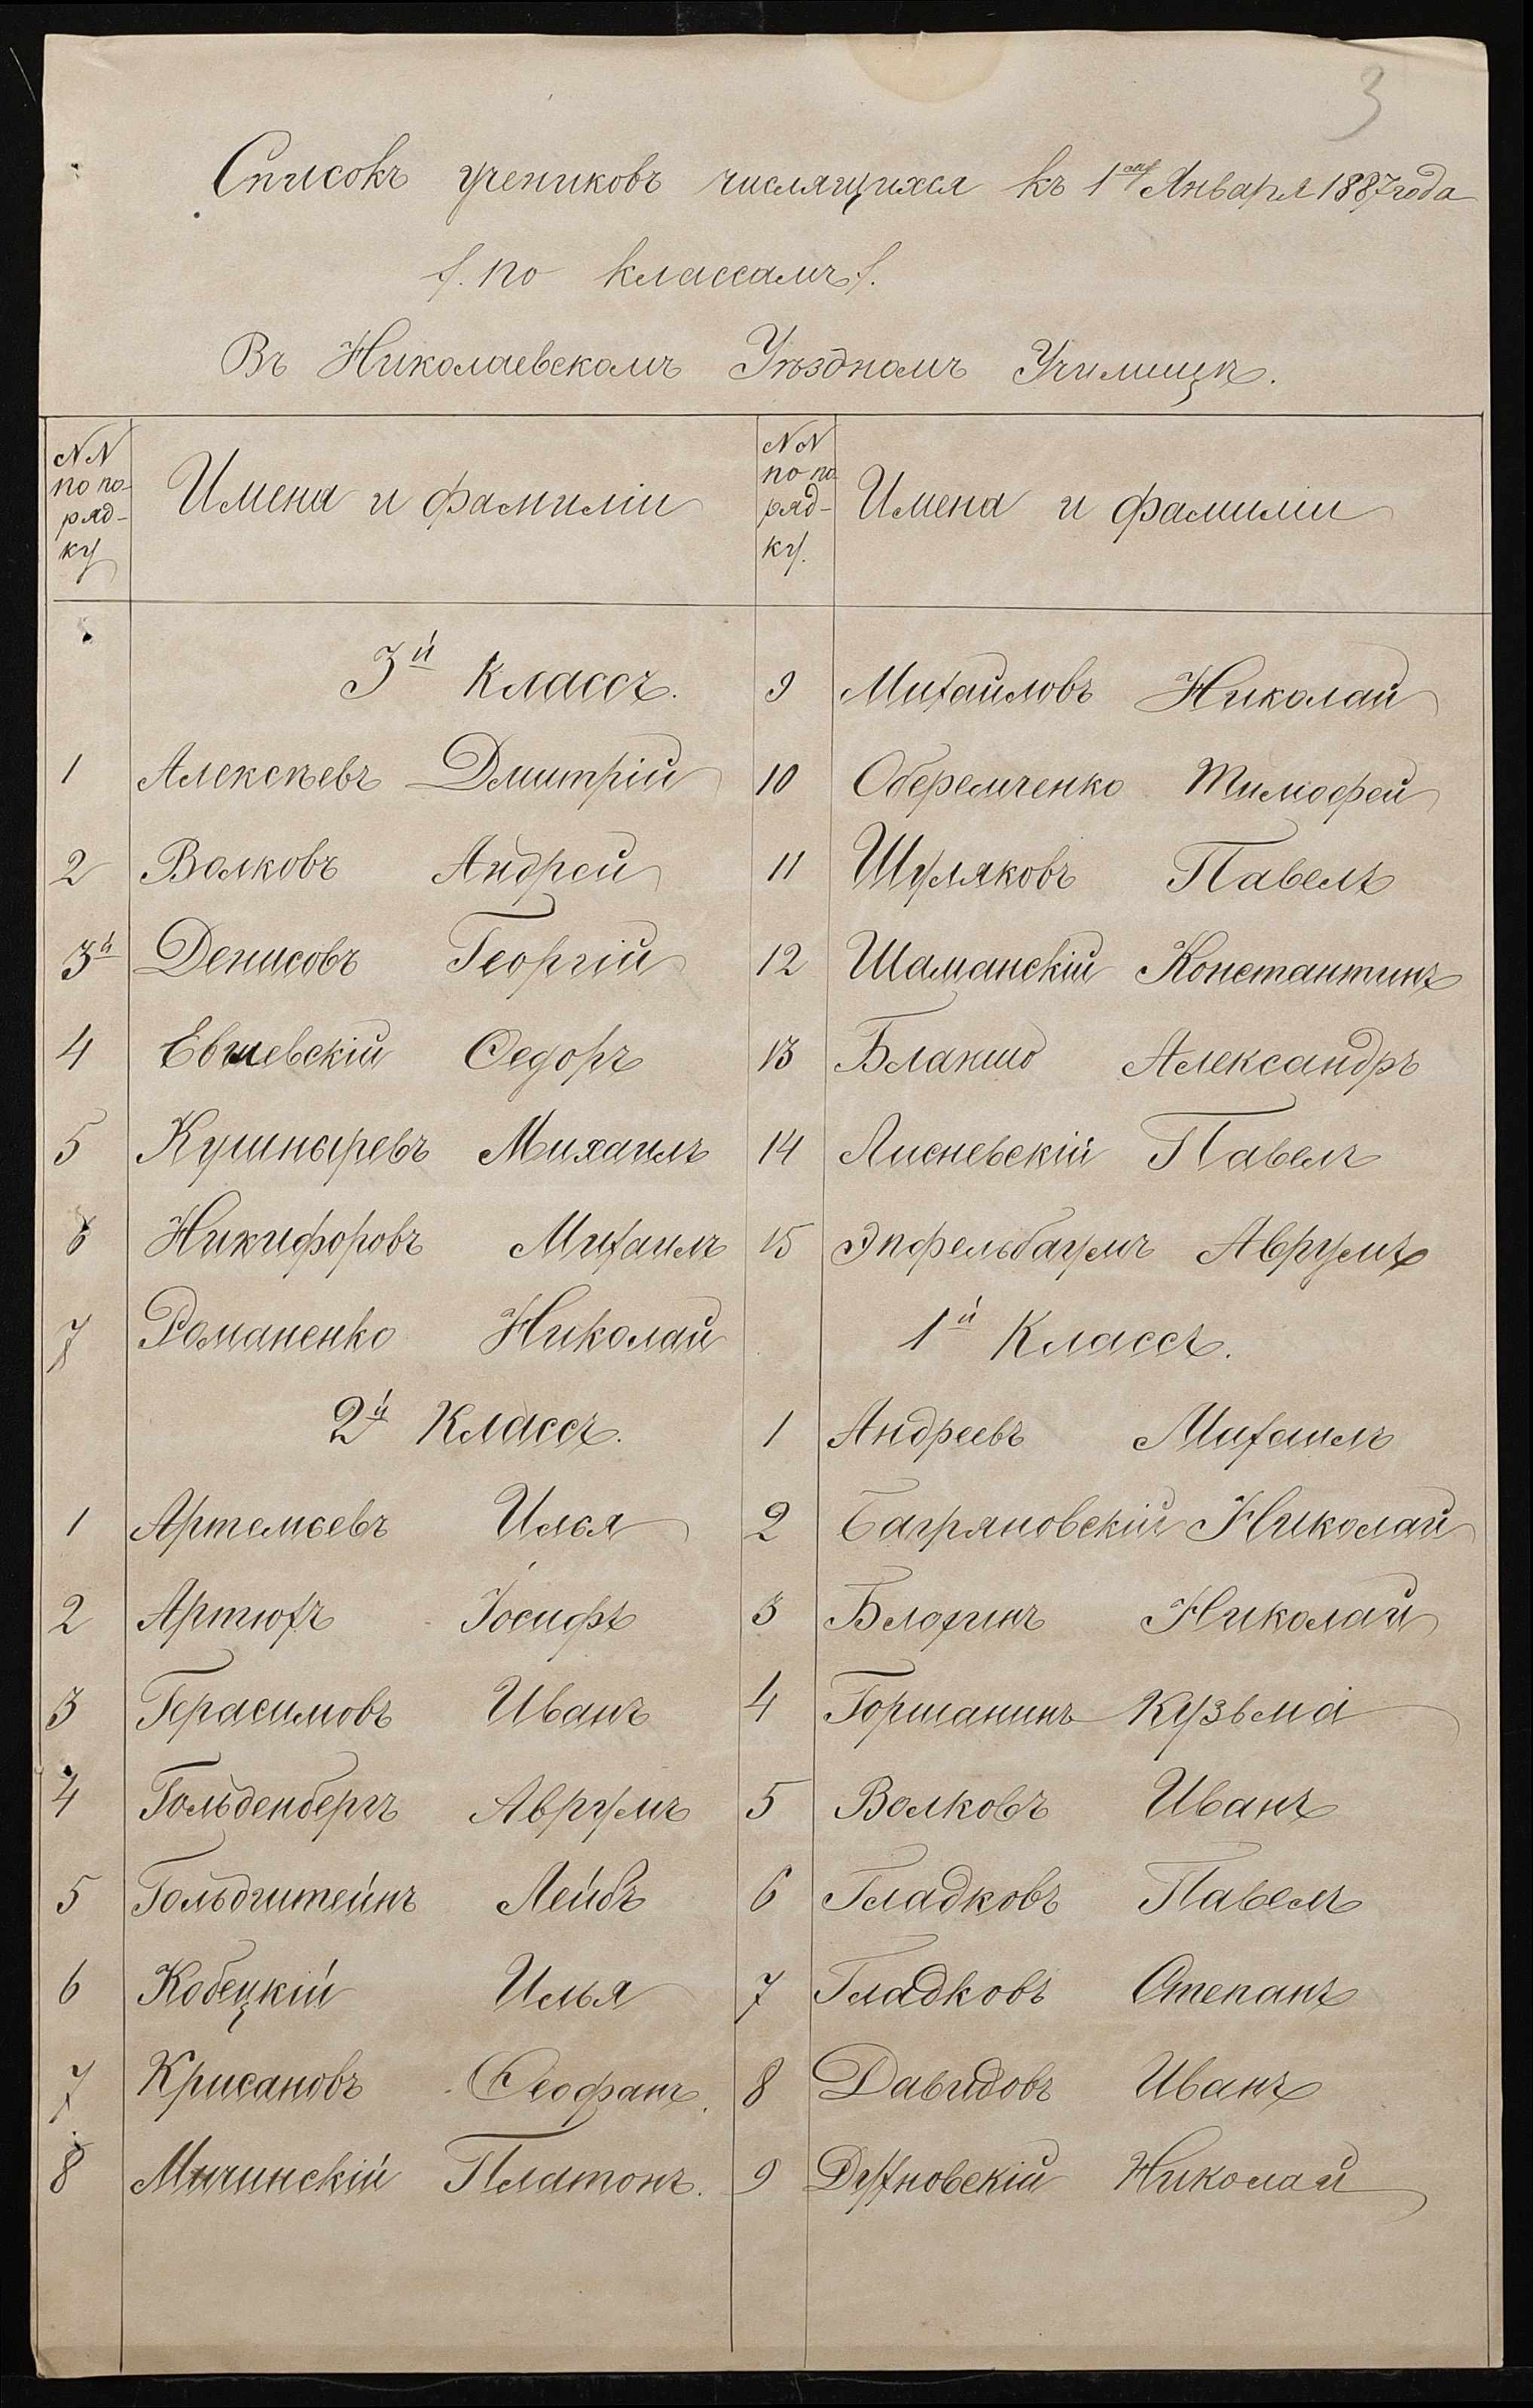 3
Списокъ учениковъ числящихся къ 1ому Января 1887 года
/. по классамъ /.
Въ Николаевскомъ Уѣздномъ Училищѣ.
NN
по по-
ряд-
ку
Имена и фамиліи
3й Классъ.
1 Алексѣевъ Дмитрій
2 Волковъ Андрей
3й Денисовъ Георгій
4 Евшевскій Ѳедоръ
5 Кушныревъ Михаилъ
6 Никифоровъ Михаилъ
7 Романенко Николай
2й Классъ.
1 Артемьевъ Илья
2 Артюхъ Іосифъ
3 Герасимовъ Иванъ
4 Гольденбергъ Аврумъ
5 Гольдштейнъ Лейбъ
6 Кобецкій Илья
7 Крисановъ Ѳеофанъ.
8 Мичинскій Платонъ.
NN
по по-
ряд-
ку.
Имена и фамиліи
9 Михайловъ Николай
10 Оберемченко Тимофей
11 Шуляковъ Павелъ
12 Шаманскій Константинъ
13 Блакшо Александръ
14 Лисневскій Павелъ
15 Эпфельбаумъ Аврумъ
1й Классъ.
1 Андреевъ Михаилъ
2 Багряновскій Николай
3 Блохинъ Николай
4 Горшанинъ Кузьма
5 Волковъ Иванъ
6 Гладковъ Павелъ
7 Гладковъ Степанъ
8 Давидовъ Иванъ
9 Духновскій Николай